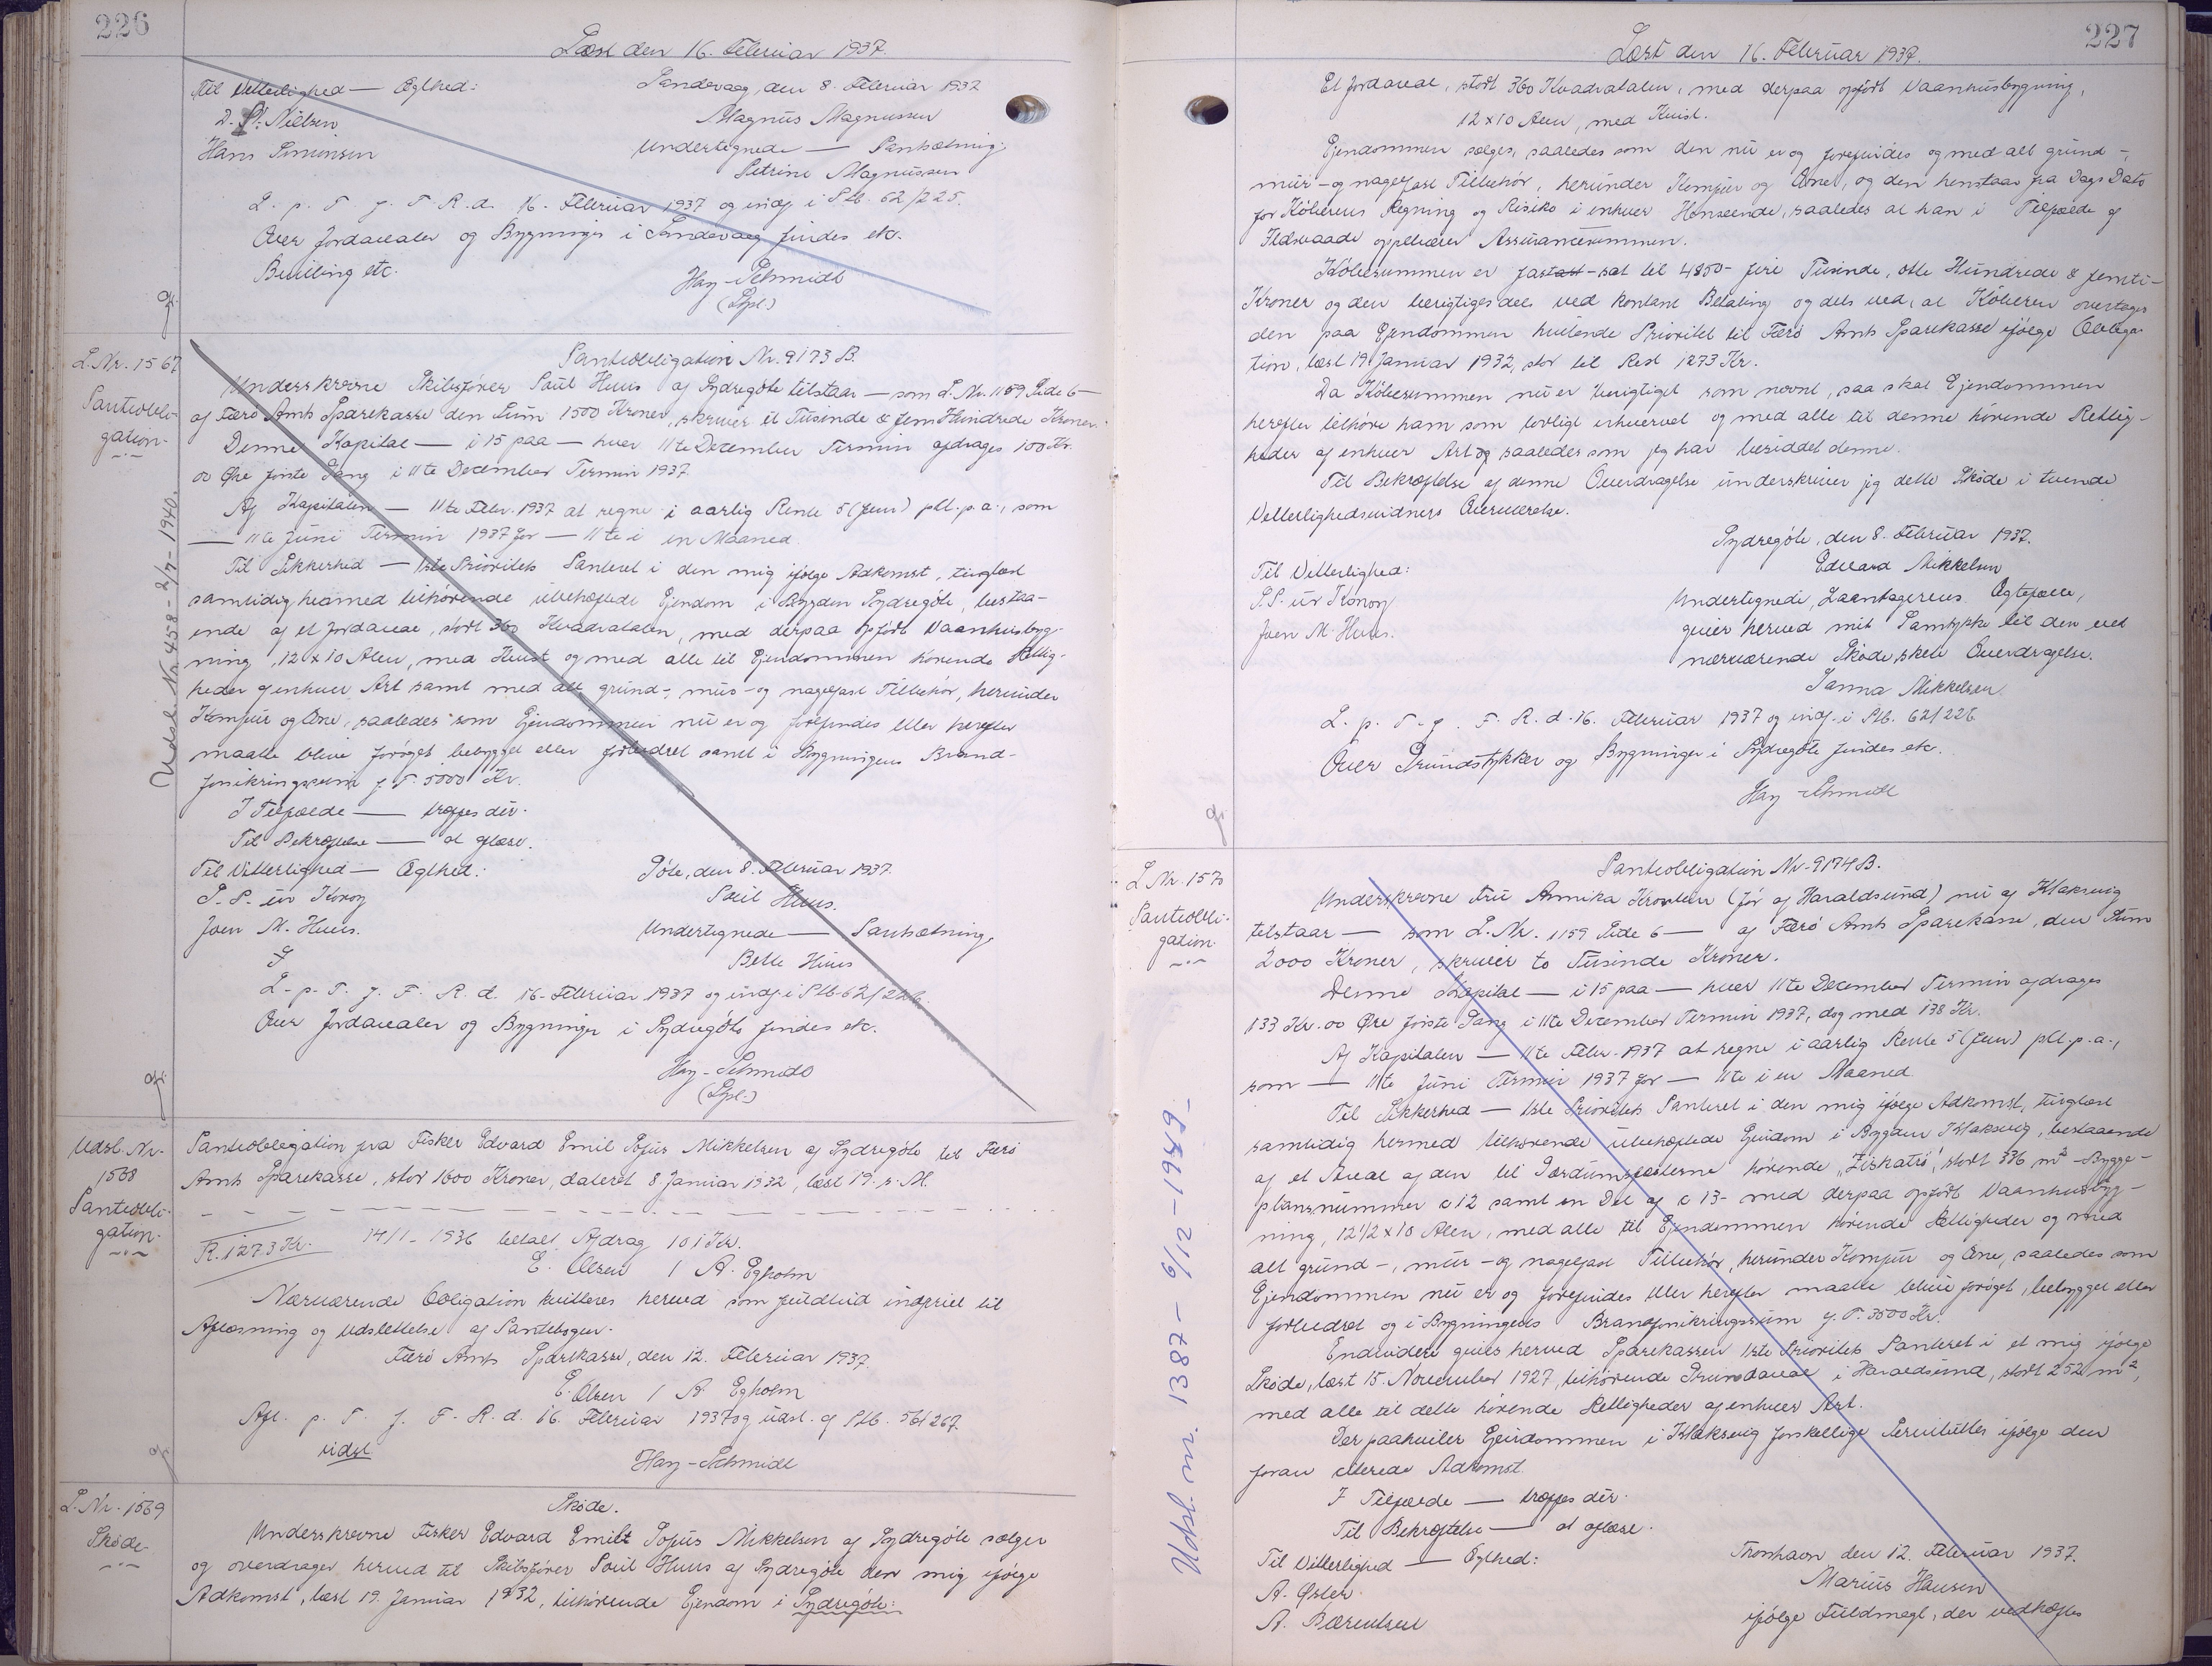 226
Læst den 16. Februar 1937.
Til Vitterlighed — Ægthed:
Sandevaag, den 8. Februar 1937
D. P. Nielsen
Magnus Magnussen
Hans Simonsen
Undertegnede — Pantsætning.
Petrine Magnussen
L. p. T. f. F. R. d. 16. Februar 1937 og indf. i Ptb. 62/225.
Over Jordarealer og Bygninger i Sandevaag findes etc.
Bevilling etc.
Hay-Schmidt
(Spl.)
L. Nr. 1567
Pantobli-
gation
Udsl. Nr. 458 - 2/7 - 1940.
Pantobligation Nr. 9173 B.
Underskrevne Skibsfører Poul Huus af Sydregøte tilstaar — som L. Nr. 1159 Side 6 —
af Færø Amts Sparekasse den Sum 1500 Kroner, skriver et Tusinde & fem Hundrede Kroner.
Denne Kapital — i 15 paa — hver 11te December Termin afdrages 100 Kr.
00 Øre første Gang i 11te December Termin 1937.
Af Kapitalen — 11te Febr. 1937 at regne i aarlig Rente 5 (fem) pCt. p. a., som
— 11te Juni Termin 1937 for — 11te i en Maaned.
Til Sikkerhed — 1ste Prioritets Panteret i den mig ifølge Adkomst, tinglæst
samtidig hermed tilhørende ubehæftede Ejendom i Bygden Sydregøte, bestaa-
ende af et Jordareal, stort 360 Kvadratalen, med derpaa opført Vaanhusbyg-
ning, 12 x 10 Alen, med Kvist og med alle til Ejendommen hørende Rettig-
heder af enhver Art samt med alt grund-, mur- og nagelfast Tilbehør, herunder
Komfur og Ovne, saaledes som Ejendommen nu er og forefindes eller herefter
maatte blive forøget, bebygget eller forbedret samt i Bygningens Brand-
forsikringssum f. T. 5000 Kr.
I Tilfælde — træffes der.
Til Bekræftelse — at aflæse.
Til Vitterlighed — Ægthed:
Gøte, den 8. Februar 1937.
P. S. úr Króki
Poul Huus.
Joen M. Huus.
Undertegnede — Pantsætning.
Belle Huus
L. p. T. f. F. R. d. 16. Februar 1937 og indf. i Ptb. 62/226.
Over Jordarealer og Bygninger i Sydregøte findes etc.
Hay-Schmidt
(Spl.)
Udsl. Nr.
1568
Pantobli-
gation.
Pantobligation fra Fisker Edvard Emil Sofus Mikkelsen af Sydregøte til Færø
Amts Sparekasse, stor 1600 Kroner, dateret 8. Januar 1932, læst 19. s. M.
R. 1273 Kr.
14/1 - 1936 betalt Afdrag 101 Kr.
E. Olsen / A. Egholm
Nærværende Obligation kvitteres herved som fuldtud indfriet til
Aflæsning og Udslettelse af Pantebogen.
Færø Amts Sparekasse, den 12. Februar 1937.
E. Olsen / A. Egholm
Afl. p. T. f. F. R. d. 16. Februar 1937 og udsl. af Ptb. 56/267.
udsl
Hay-Schmidt
L. Nr. 1569
Skøde.
Skøde.
Underskrevne Fisker Edvard Emil Sofus Mikkelsen af Sydregøte sælger
og overdrager herved til Skibsfører Poul Huus af Sydregøte den mig ifølge
Adkomst, læst 19. Januar 1932, tilhørende Ejendom i Sydregøte:
227
Læst den 16. Februar 1937.
Et Jordareal, stort 360 Kvadratalen, med derpaa opført Vaanhusbygning,
12 x 10 Alen, med Kvist.
Ejendommen sælges, saaledes som den nu er og forefindes og med alt grund-,
mur- og nagelfast Tilbehør, herunder Komfur og Ovne, og den henstaar fra Dags Dato
for Køberens Regning og Risiko i enhver Henseende, saaledes at han i Tilfælde af
Ildsvaade oppebærer Assurancesummen.
Købesummen er fastsat til 4850 - fire Tusinde, otte Hundrede & femti -
Kroner og den berigtiges dels ved kontant Betaling og dels ved, at Køberen overtager
den paa Ejendommen hvilende Prioritet til Færø Amts Sparekasse ifølge Obliga-
tion, læst 19. Januar 1932, stor til Rest 1273 Kr.
Da Købesummen nu er berigtiget som nævnt, saa skal Ejendommen
herefter tilhøre ham som lovligt erhvervet og med alle til denne hørende Rettig-
heder af enhver Art og saaledes som jeg har besiddet denne.
Til Bekræftelse af denne Overdragelse underskriver jeg dette Skøde i tvende
Vitterlighedsvidners Overværelse.
Sydregøte, den 8. Februar 1937.
Til Vitterlighed:
Edvard Mikkelsen
P. S. úr Króki
Undertegnede, Laantagerens Ægtefælle,
Joen M. Huus.
giver herved mit Samtykke til den ved
nærværende Skøde skete Overdragelse.
Sanna Mikkelsen.
L. p. T. f. F. R. d. 16. Februar 1937 og indf. i Ptb. 62/226
Over Grundstykker og Bygninger i Sydregøte findes etc.
Hay-Schmidt
L. Nr. 1570
Pantobli-
gation.
Udsl. nr. 1387 - 6/12 - 1949 -
Pantobligation Nr. 9174 B.
Underskrevne Fru Annika (før af Haraldsund) nu af Klaksvig
tilstaar — som L. Nr. 1159 Side 6 — af Færø Amts Sparekasse, den Sum
2000 Kroner, skriver to Tusinde Kroner.
Denne Kapital — i 15 paa — hver 11te December Termin afdrages
133 Kr. 00 Øre første Gang i 11te December Termin 1937, dog med 138 Kr.
Af Kapitalen — 11te Febr. 1937 at regne i aarlig Rente 5 (fem) pCt. p. a.,
som — 11te Juni Termin 1937 for — 11te i en Maaned.
Til Sikkerhed — 1ste Prioritets Panteret i den mig ifølge Adkomst, tinglæst
samtidig hermed tilhørende ubehæftede Ejendom i Bygden Klaksvig, bestaaende
af et Areal af den til hørende, stort 336 m² - Bygge-
plansnummer c 12 samt en Del af c 13 - med derpaa opført Vaanhusbyg-
ning, 12 1/2 x 10 Alen, med alle til Ejendommen hørende Rettigheder og med
alt grund-, mur- og nagelfast Tilbehør, herunder Komfur og Ovne, saaledes som
Ejendommen nu er og forefindes eller herefter maatte blive forøget, bebygget eller
forbedret og i Bygningens Brandforsikringssum f. T. 3500 Kr.
Endvidere gives herved Sparekassen 1ste Prioritets Panteret i et mig ifølge
Skøde, læst 15. November 1927, tilhørende Grundareal i Haraldsund, stort 252 m²,
med alle til dette hørende Rettigheder af enhver Art.
Der paahviler Ejendommen i Klaksvig forskellige Servitutter ifølge den
foran citerede Adkomst.
I Tilfælde — træffes der.
Til Bekræftelse — at aflæse.
Til Vitterlighed — Ægthed:
Thorshavn den 12. Februar 1937.
A. Øster.
Marius Hansen
A. Bærentsen
ifølge Fuldmagt, der vedhæftes